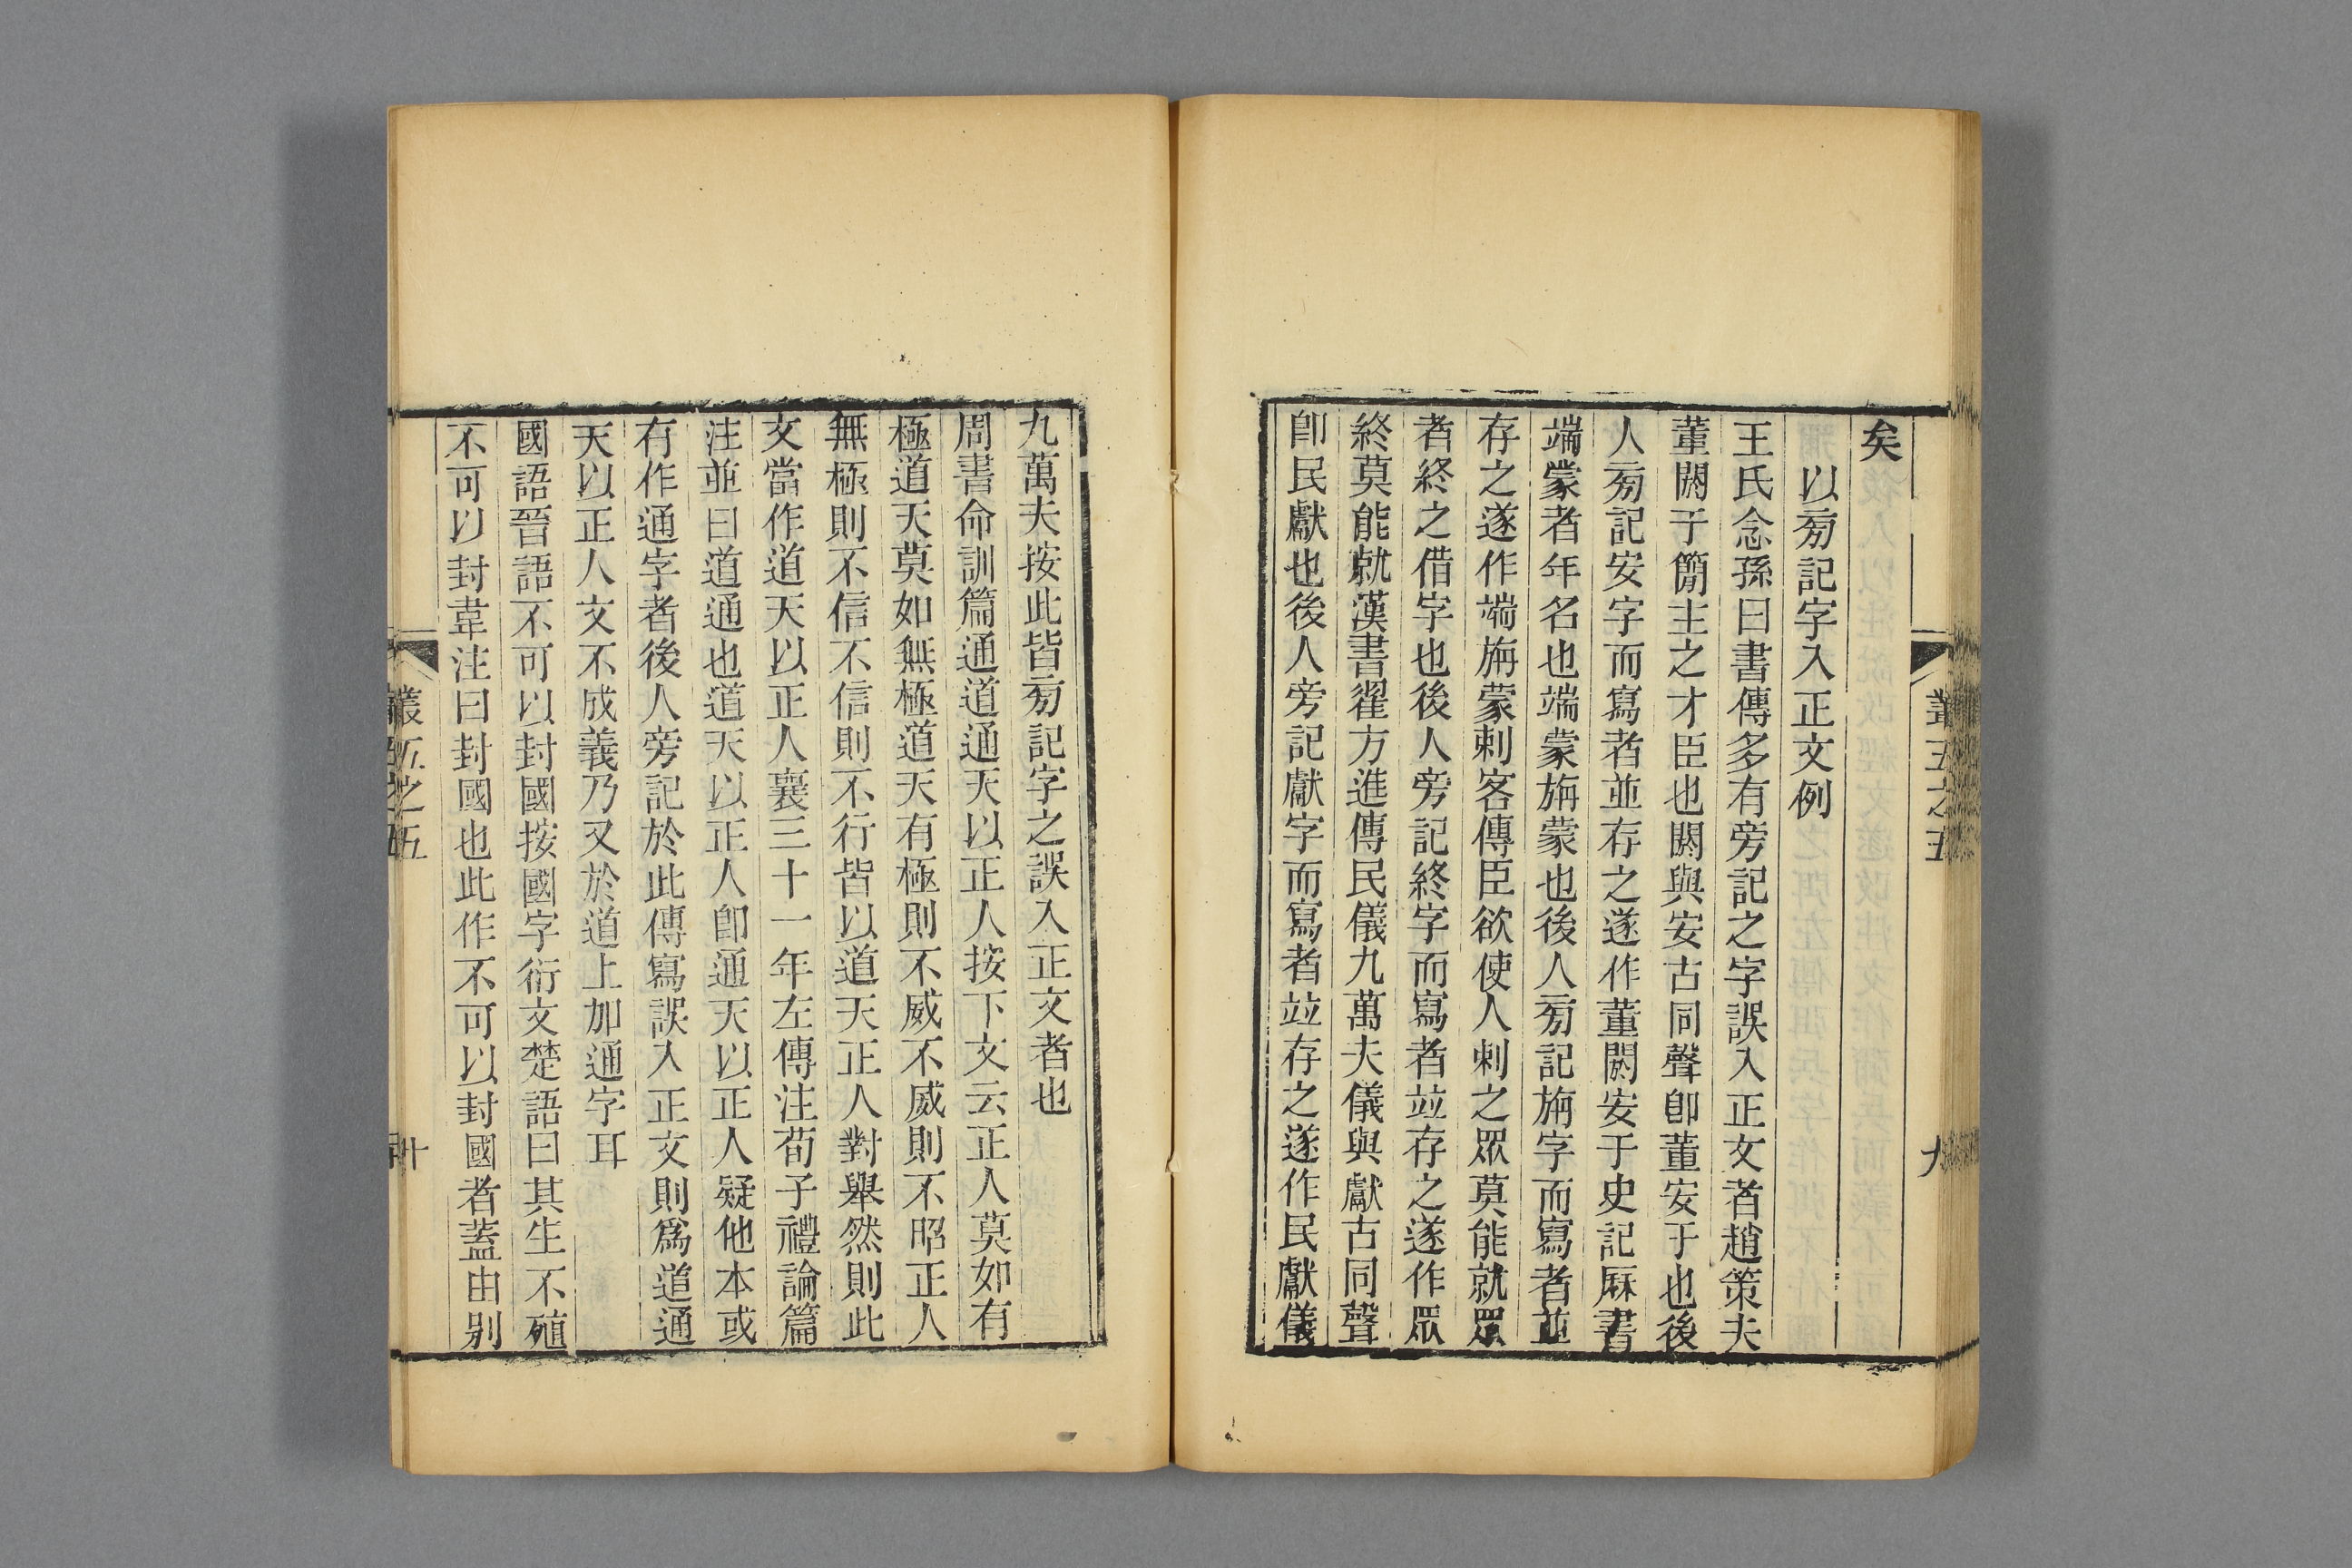 叢五之五
九
矣
以㫄記字入正文例
王氏念孫曰書傳多有旁記之字誤入正文者趙策夫
董閼于簡主之才臣也閼與安古同聲卽董安于也後
人㫄記安字而寫者並存之遂作董閼安于史記厤書
端蒙者年名也端蒙旃蒙也後人㫄記旃字而寫者並
存之遂作端旃蒙刺客傳臣欲使人刺之眾莫能就眾
者終之借字也後人旁記終字而寫者竝存之遂作眾
終莫能就漢書翟方進傳民儀九萬夫儀與獻古同聲
卽民獻也後人旁記獻字而寫者竝存之遂作民獻儀
九萬夫按此皆㫄記字之誤入正文者也
周書命訓篇通道通天以正人按下文云正人莫如有
極道天莫如無極道天有極則不威不威則不昭正人
無極則不信不信則不行皆以道天正人對舉然則此
文當作道天以正人襄三十一年左傳注荀子禮論篇
注並曰道通也道天以正人卽通天以正人疑他本或
有作通字者後人旁記於此傳寫誤入正文則爲道通
天以正人文不成義乃又於道上加通字耳
國語晉語不可以封國按國字衍文楚語曰其生不殖
不可以封韋注曰封國也此作不可以封國者蓋由別
叢五之五
十